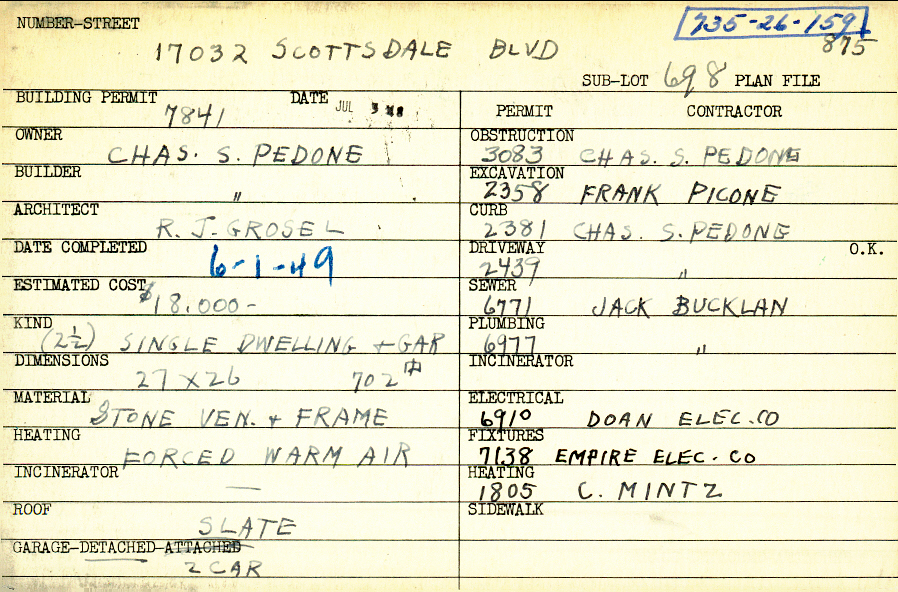 NUMBER-STREET
735-26-159
17032 SCOTTSDALE BLVD
875
SUB-LOT 698 PLAN FILE
BUILDING PERMIT 7841 DATE JUL
OWNER
CHAS. S. PEDONE
BUILDER
"
ARCHITECT
R. J. GROSEL
DATE COMPLETED
6-1-49
ESTIMATED COST
$18,000-
KIND
(2½) SINGLE DWELLING + GAR
DIMENSIONS
27 X 26 702
MATERIAL
STONE VEN. + FRAME
HEATING
FORCED WARM AIR
INCINERATOR
—
ROOF
SLATE
GARAGE-DETACHED-ATTACHED
2 CAR
PERMIT CONTRACTOR
OBSTRUCTION
3083 CHAS. S. PEDONE
EXCAVATION
2358 FRANK PICONE
CURB
2381 CHAS. S. PEDONE
DRIVEWAY O.K.
2439 "
SEWER
6771 JACK BUCKLAN
PLUMBING
6977 "
INCINERATOR
ELECTRICAL
6910 DOAN ELEC. CO
FIXTURES
7138 EMPIRE ELEC. CO
HEATING
1805 C. MINTZ
SIDEWALK